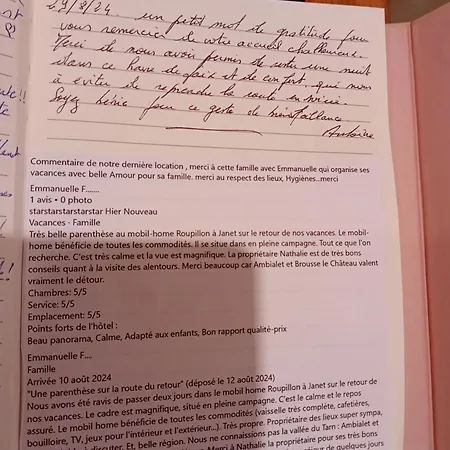 9/8/24. un petit mot de gratitude pour
vous remercier de votre accueil chaleureux.
Merci de nous avoir permis de rester une nuit
dans ce havre de paix et de confort, qui nous
à éviter de reprendre la route
Soyez béni pour ce geste de
Antoine
Commentaire de notre dernière location , merci à cette famille avec Emmanuelle qui organise ses
vacances avec belle Amour pour sa famille. merci au respect des lieux, Hygiènes..merci
Emmanuelle F.......
1 avis • 0 photo
starstarstarstarstar Hier Nouveau
Vacances - Famille
Très belle parenthèse au mobil-home Roupillon à Janet sur le retour de nos vacances. Le mobil-
home bénéficie de toutes les commodités. Il se situe dans en pleine campagne. Tout ce que l'on
recherche. C'est très calme et la vue est magnifique. La propriétaire Nathalie est de très bons
conseils quant à la visite des alentours. Merci beaucoup car Ambialet et Brousse le Château valent
vraiment le détour.
Chambres: 5/5
Service: 5/5
Emplacement: 5/5
Points forts de l'hôtel :
Beau panorama, Calme, Adapté aux enfants, Bon rapport qualité-prix
Emmanuelle F....
Famille
Arrivée 10 août 2024
"Une parenthèse sur la route du retour" (déposé le 12 août 2024)
Nous avons été ravis de passer deux jours dans le mobil home Roupillon à Janet sur le retour de
nos vacances. Le cadre est magnifique, situé en pleine campagne. C'est le calme et le repos
assuré. Le mobil home bénéficie de toutes les commodités (vaisselle très complète, cafetières,
bouilloire, TV, jeux pour l'intérieur et l'extérieur...). Très propre. Propriétaire des lieux super sympa,
à discuter. Et, belle région. Nous ne connaissions pas la vallée du Tarn : Ambialet et
Merci à Nathalie la propriétaire pour ses très bons
de quelques jours